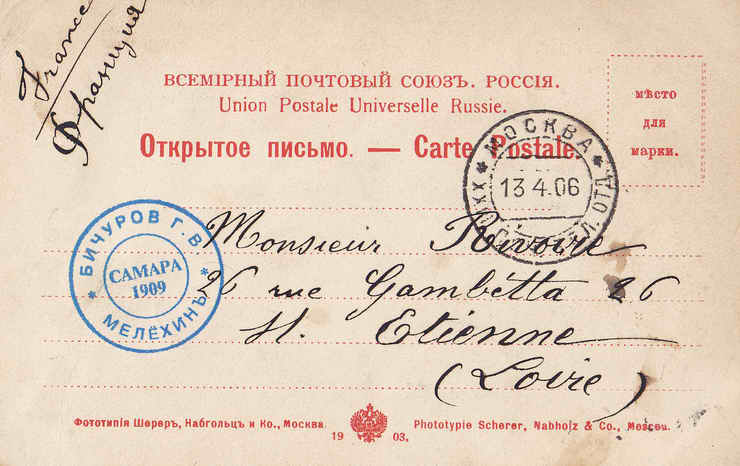 France
Франция
ВСЕМІРНЫЙ ПОЧТОВЫЙ СОЮЗЪ. РОССІЯ.
Union Postale Universelle Russie.
Открытое письмо. — Carte Postale.
мѣсто
для
марки.
* МОСКВА *
13 4.06
БИЧУРОВ Г.В.
САМАРА
1909
* МЕЛЁХИНЪ *
Monsieur Rivoire
26 rue Gambetta 26
St. Etienne
(Loire)
Фототипія Шереръ, Набгольцъ и Ко., Москва.
Phototypie Scherer, Nabholz & Co., Moscou.
19 03.